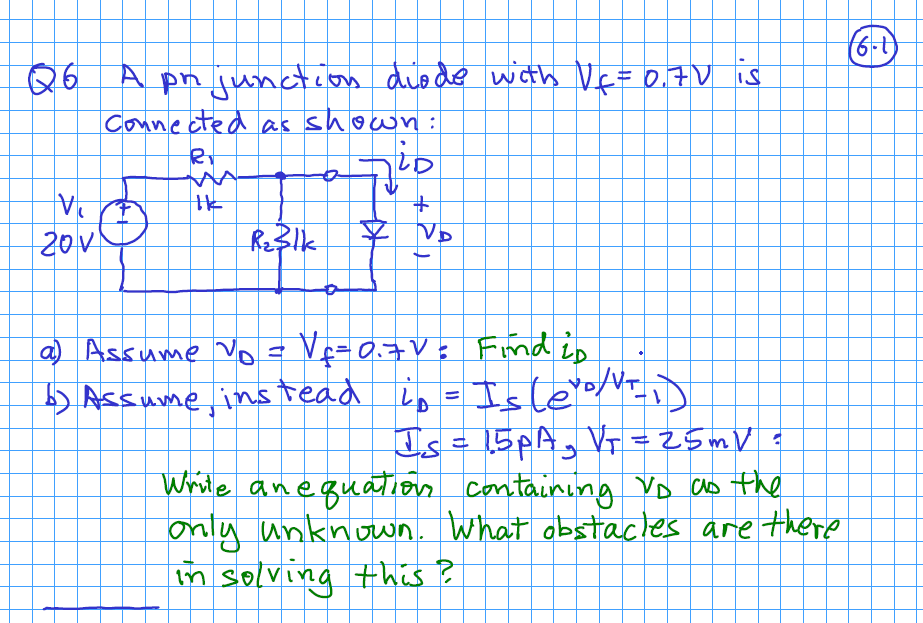 6.1
Q6 A pn junction diode with Vf = 0.7V is
connected as shown:
R1
iD
Vi
+
1k
+
20V
R2 1k
VD
-
a) Assume vD = Vf = 0.7V: Find iD
b) Assume, instead iD = Is(e^vD/VT - 1)
Is = 15pA, VT = 25mV:
Write an equation containing vD as the
only unknown. What obstacles are there
in solving this?